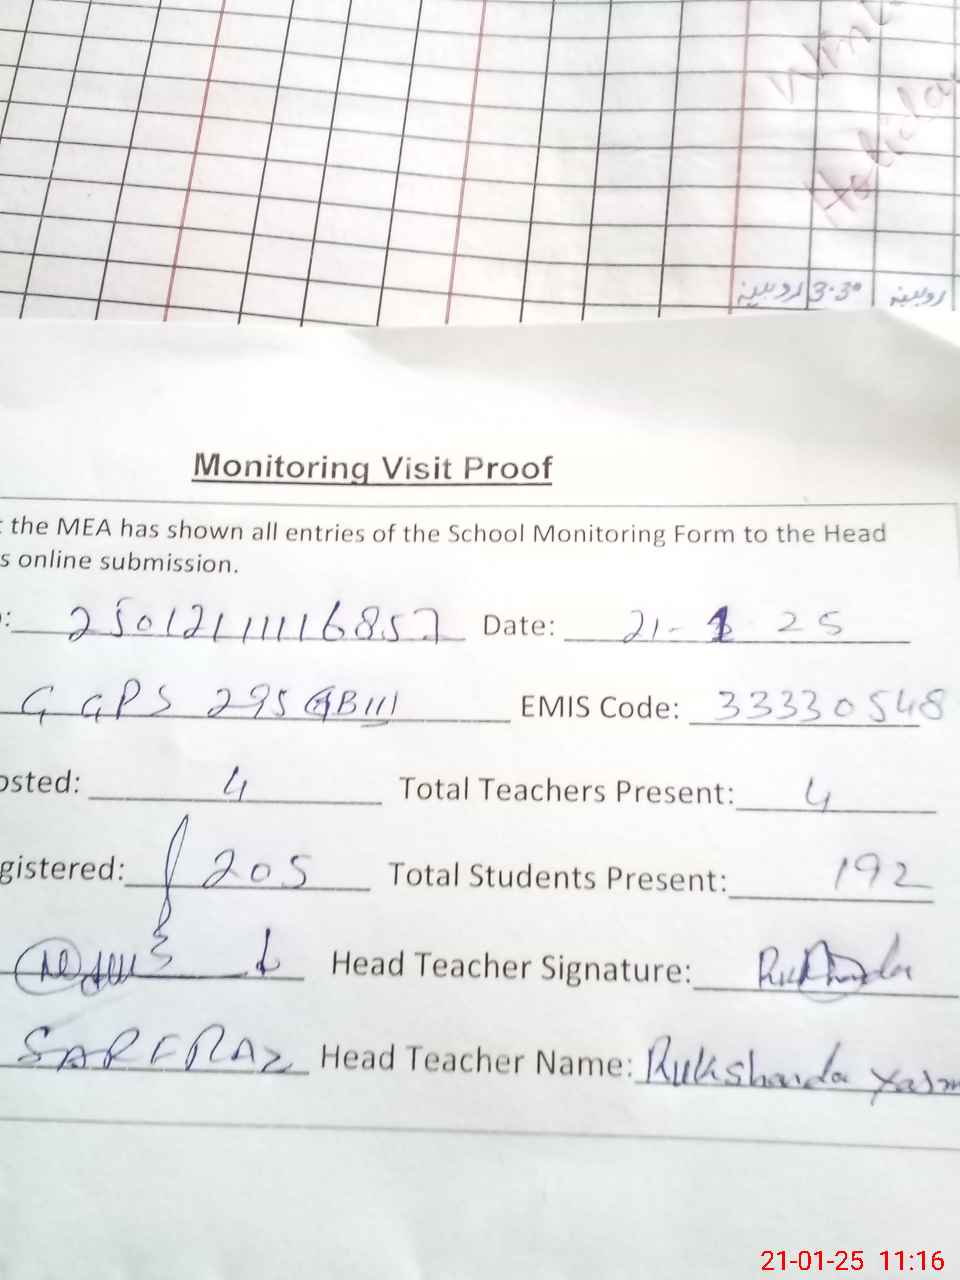 Holiday
روبینہ 3.30 روبینہ
Monitoring Visit Proof
the MEA has shown all entries of the School Monitoring Form to the Head
s online submission.
: 2501211116857 Date: 21-1 25
G GPS 295 GB III EMIS Code: 33330548
osted: 4 Total Teachers Present: 4
gistered: 205 Total Students Present: 192
Head Teacher Signature: Rukhanda
SARFRAZ Head Teacher Name: Rukshanda Yasm
21-01-25 11:16